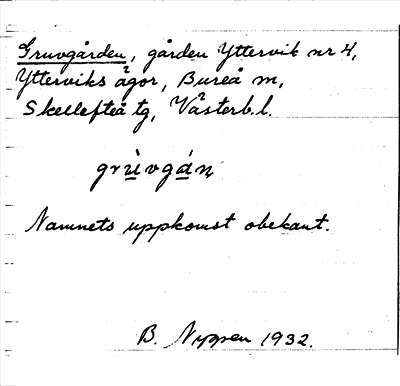 Gruvgården, gården Yttervik nr 4,
Ytterviks ägor, Bureå sn,
Skellefteå tg, Västerb. l.
grùvgán
Namnets uppkomst obekant.
B. Nyssen 1932.